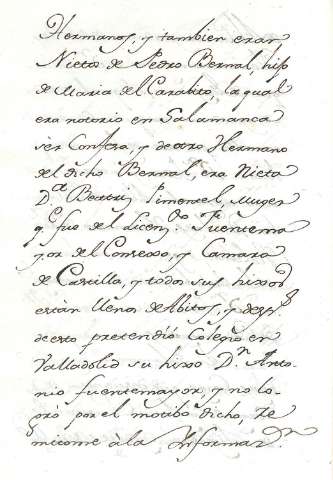 Hermanos, y tambien eran
Nietos de Pedro Bernal, hijo
de Maria del Carabito, la qual
era notorio en Salamanca
ser Confesa, y de otro Hermano
del dicho Bernal, era Nieta
D.ª Beatriz Pimentel, Muger
q.e fue del Licen.do Fuentema
yor del Consexo, y Camara
de Castilla, y todos sus hixos
están llenos de Abitos, y desp.s
de esto pretendió Colegio en
Valladolid su hixo D.n Anto-
nio fuentemayor, y no lo-
gró por el motibo dicho, re
mitome à la Informaz.on